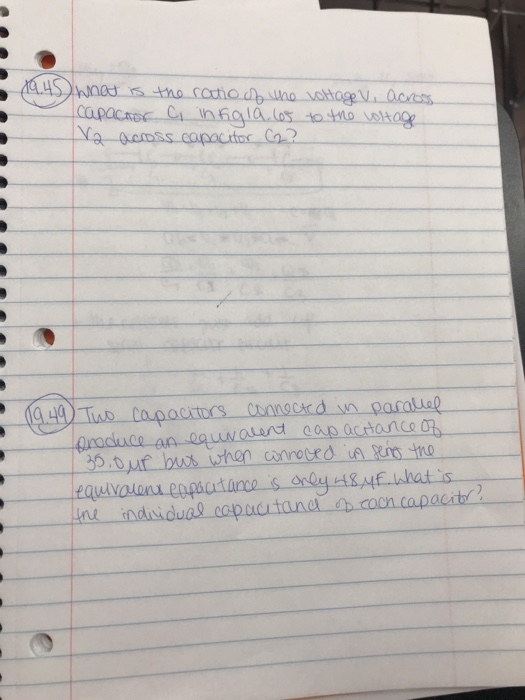 19.45 What is the ratio of the voltage V1 across
capacitor C1 in Fig 19.65 to the voltage
V2 across capacitor C2?
19.49 Two capacitors connected in parallel
produce an equivalent capacitance of
35.0 μF but when connected in series the
equivalent capacitance is only 48 μF. What is
the individual capacitance of each capacitor?